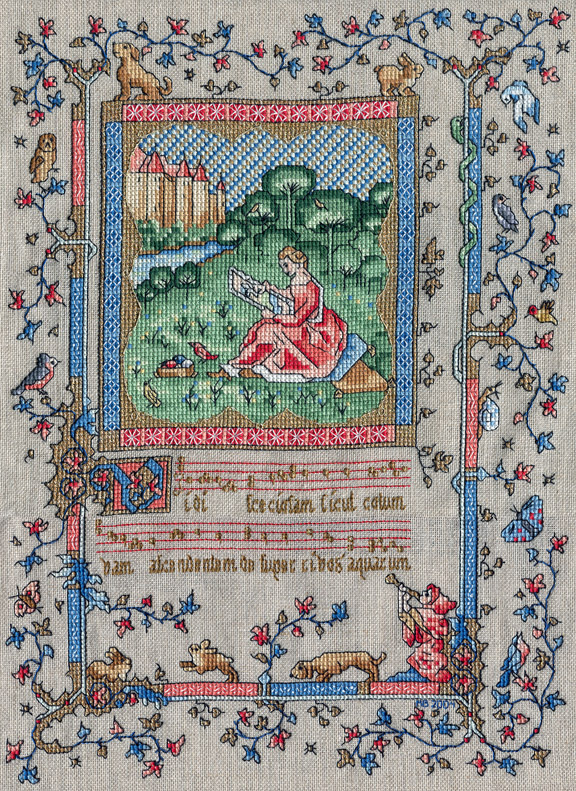 Vidi speciosam sicut colum
bam ascendentem de super rivos aquarum
MB 2004